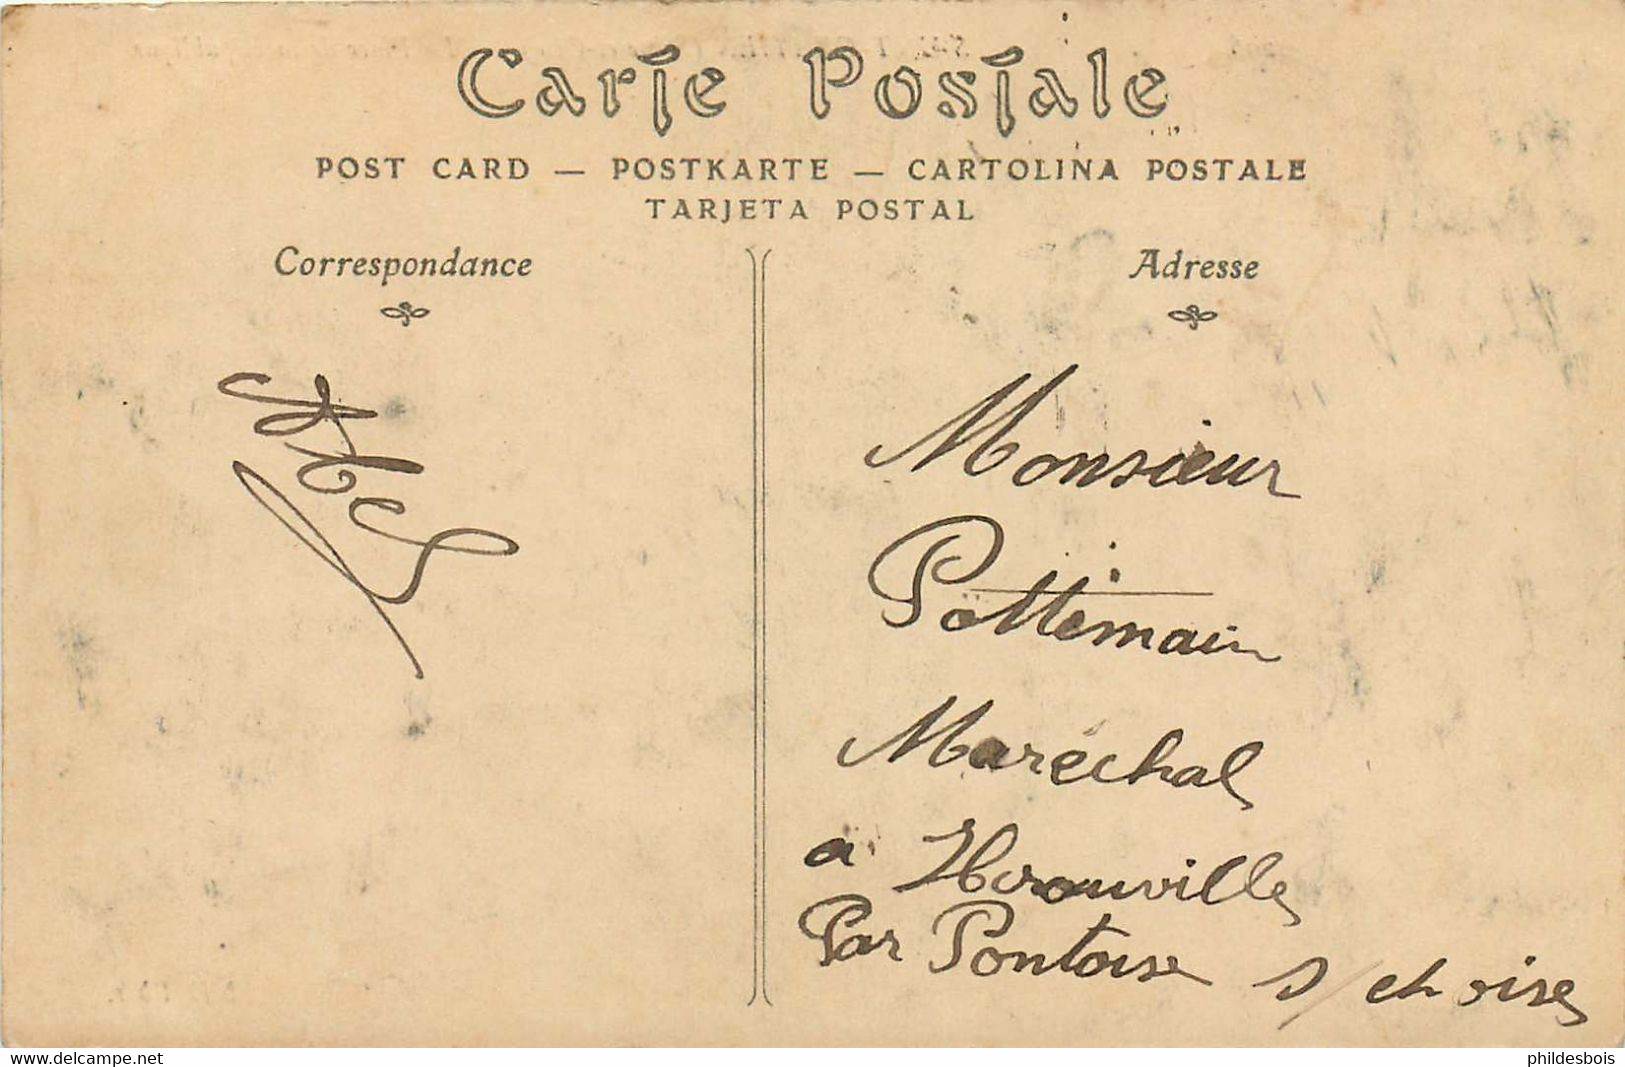 Carte Postale
POST CARD — POSTKARTE — CARTOLINA POSTALE
TARJETA POSTAL
Correspondance
Adresse
Monsieur
Pottemain
Maréchal
a Herouville
Par Pontoise s/ et oise
www.delcampe.net
phildesbois